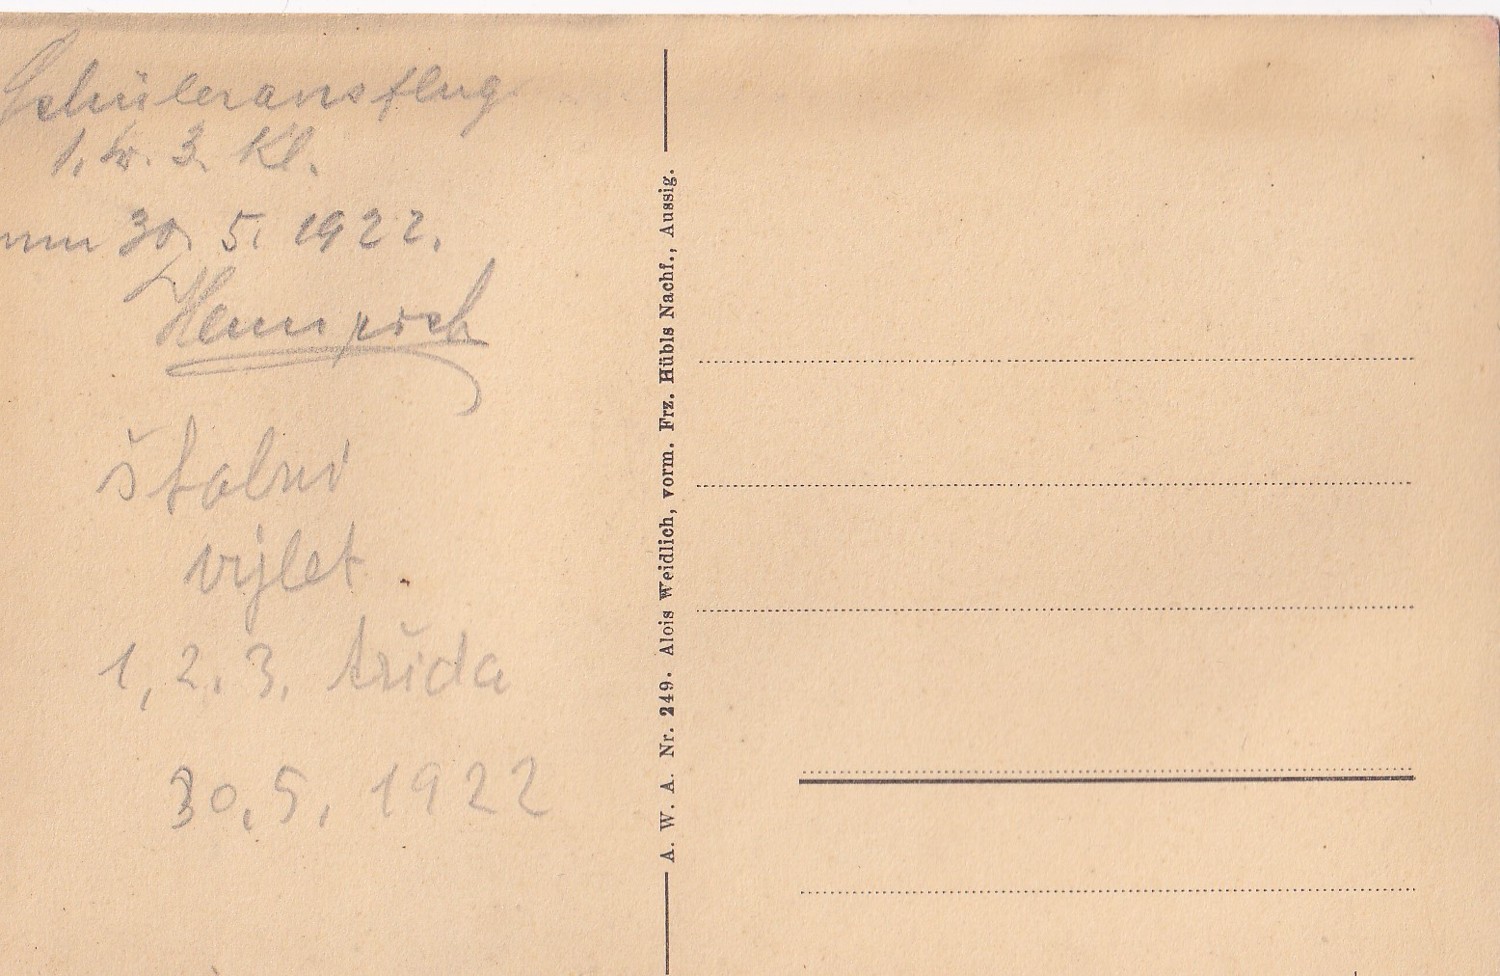 Schülerausflug
1. u. 3. Kl.
am 30. 5. 1922.
školní
výlet
1, 2. 3. třída
30. 5. 1922
A. W. A. Nr. 249. Alois Weidlich, vorm. Frz. Hübls Nachf., Aussig.